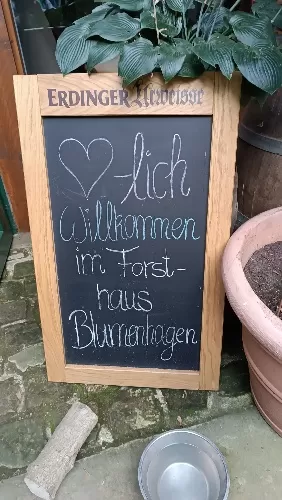 ERDINGER Urweisse
♡-lich
Willkommen
im Forst-
haus
Blumenhagen